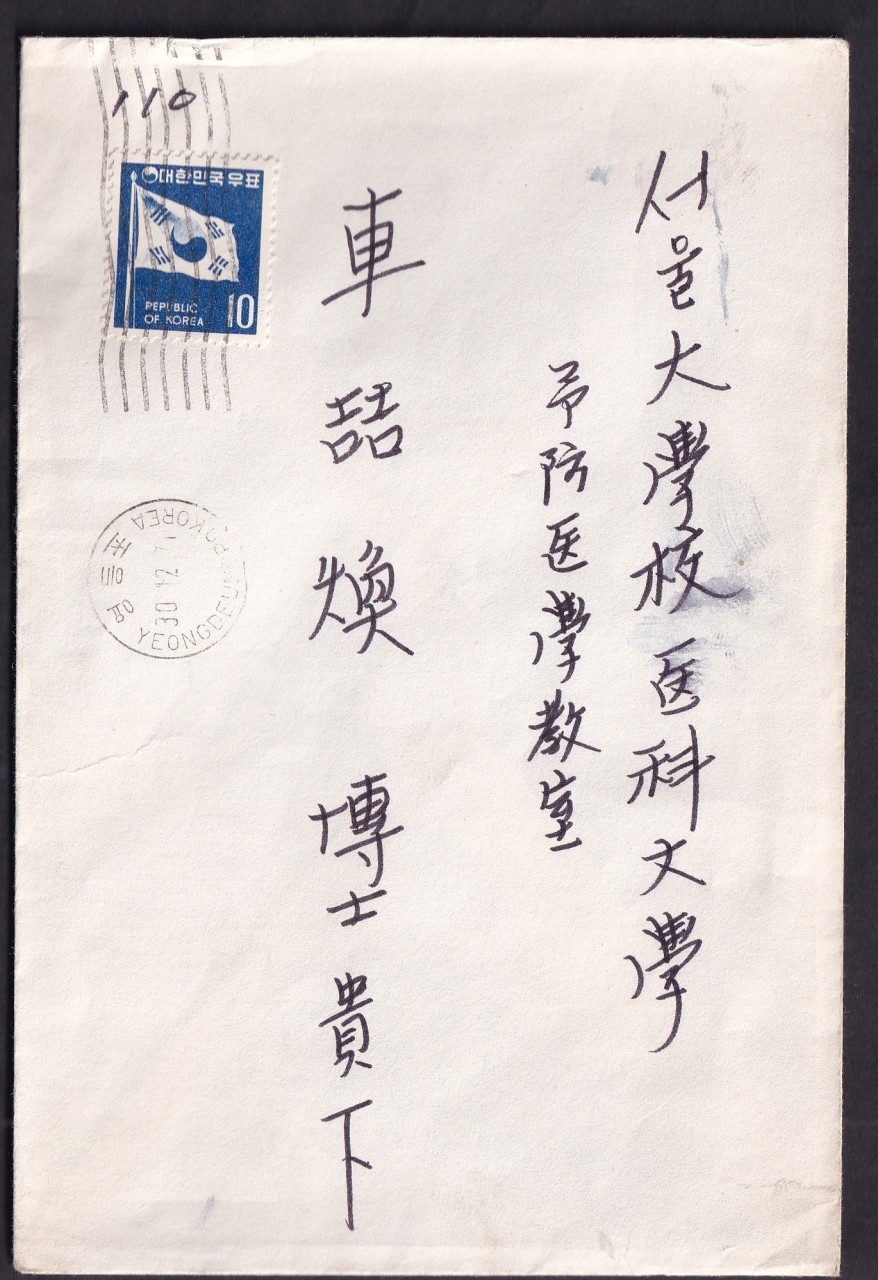 서울大學校医科大學
予防医學敎室
車喆煥 博士 貴下
110
대한민국우표
REPUBLIC
OF KOREA
10
영등포
YEONGDEUNGPO KOREA
30 12